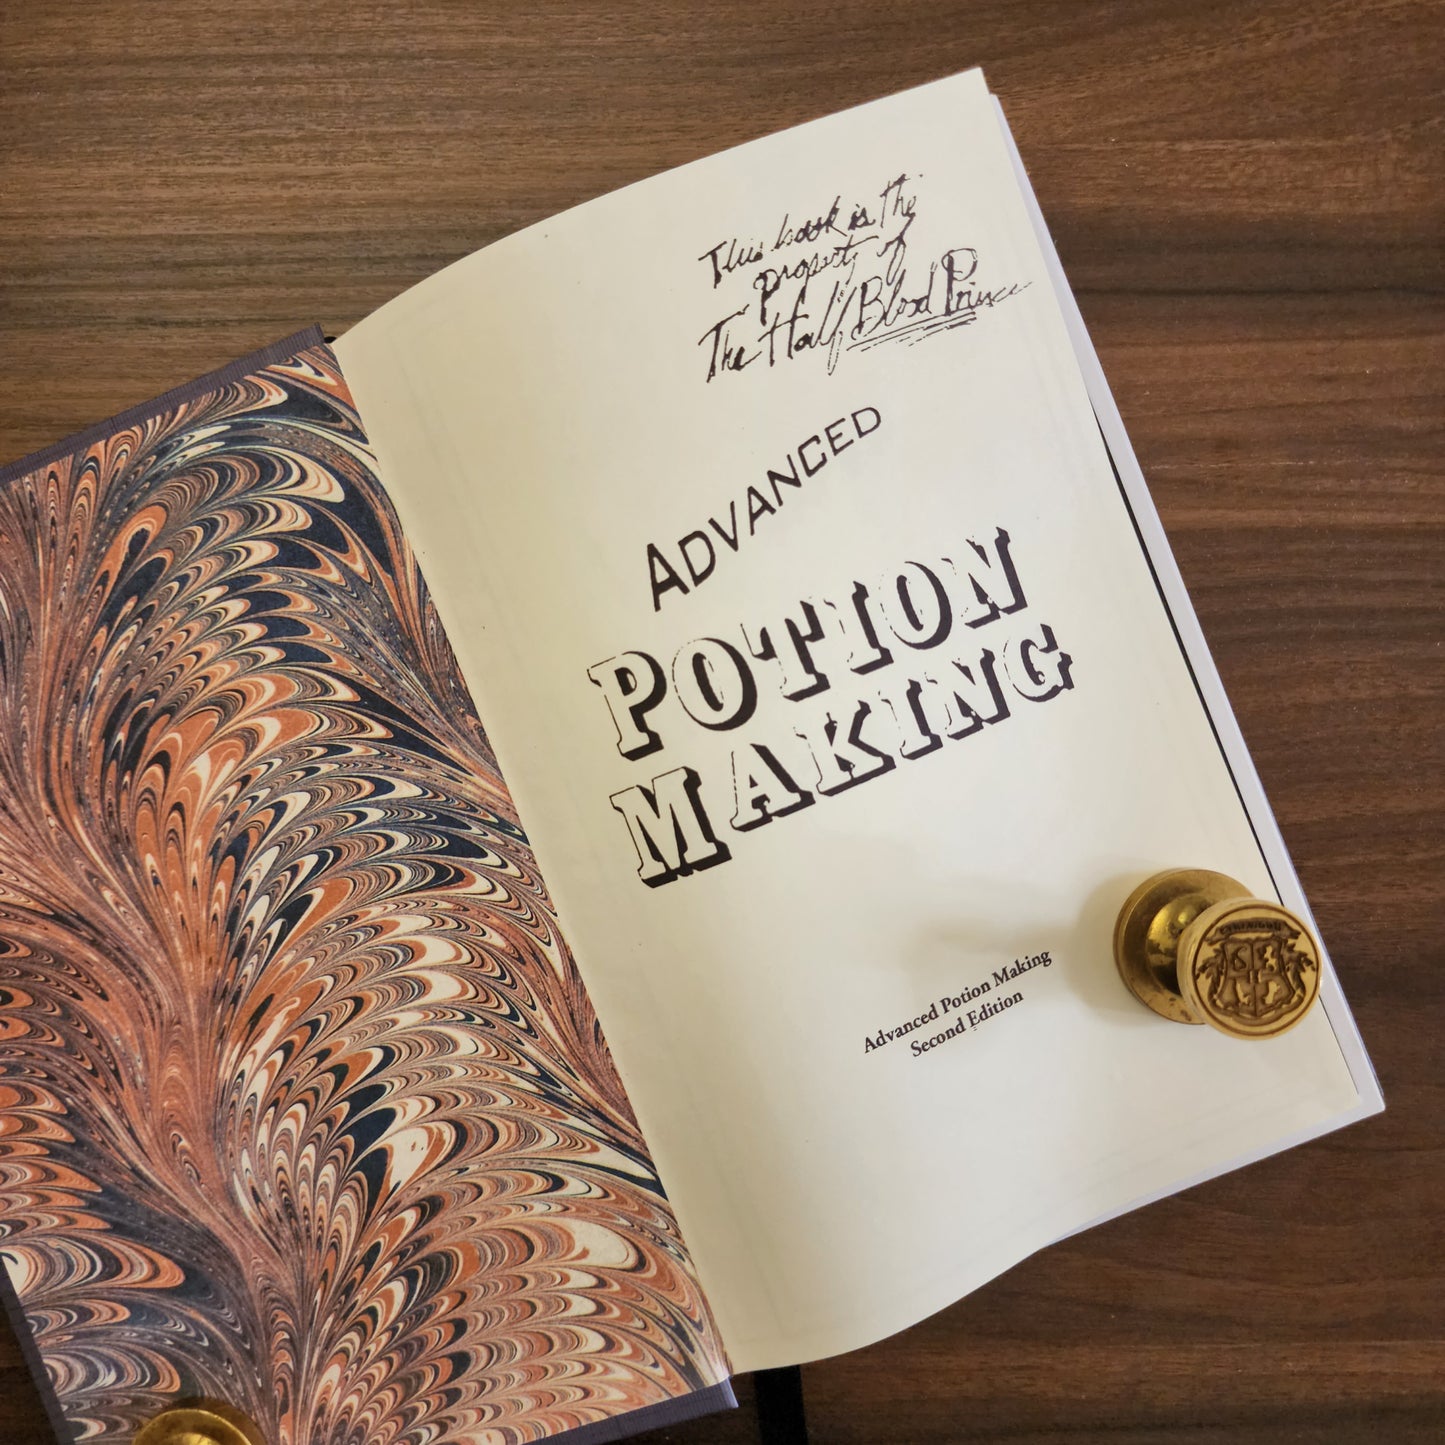 This book is the
property of
The Half Blood Prince
ADVANCED
POTION
MAKING
Advanced Potion Making
Second Edition